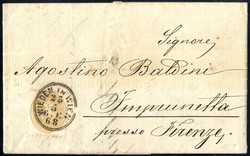 Signore,
Agostino Baldini
Imprunetta
presso Firenze,
WIEDEN IN WIEN